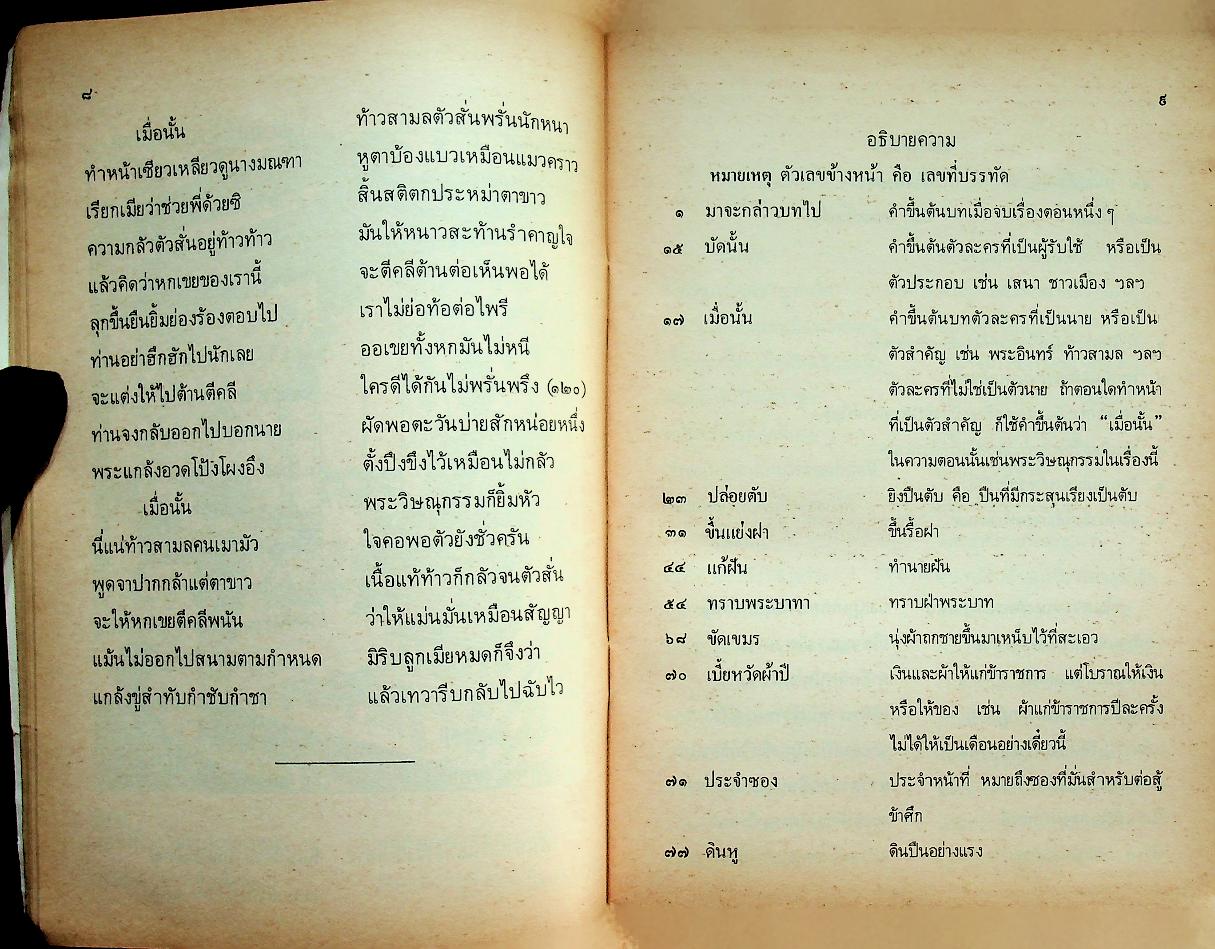 ๘
เมื่อนั้น ท้าวสามลตัวสั่นพรั่นนักหนา
ทำหน้าเซียวเหลียวดูนางมณฑา หูตาบ้องแบวเหมือนแมวคราว
เรียกเมียว่าช่วยพี่ด้วยซิ สิ้นสติตกประหม่าตาขาว
ความกลัวตัวสั่นอยู่ท้าวท้าว มันให้หนาวสะท้านรำคาญใจ
แล้วคิดว่าหกเขยของเรานี้ จะตีคลีต้านต่อเห็นพอได้
ลุกขึ้นยืนยิ้มย่องร้องตอบไป เราไม่ย่อท้อต่อไพรี
ท่านอย่าฮึกฮักไปนักเลย ออเขยทั้งหกมันไม่หนี
จะแต่งให้ไปต้านตีคลี ใครดีได้กันไม่พรั่นพรึง (๑๒๐)
ท่านจงกลับออกไปบอกนาย ผัดพอตะวันบ่ายสักหน่อยหนึ่ง
พระแกล้งอวดโป้งโผงอึง ตั้งปึงขึงไว้เหมือนไม่กลัว
เมื่อนั้น พระวิษณุกรรมก็ยิ้มหัว
นี่แน่ท้าวสามลคนเมามัว ใจคอพอตัวยังชั่วครัน
พูดจาปากกล้าแต่ตาขาว เนื้อแท้ท้าวก็กลัวจนตัวสั่น
จะให้หกเขยตีคลีพนัน ว่าให้แม่นมั่นเหมือนสัญญา
แม้นไม่ออกไปสนามตามกำหนด มิริบลูกเมียหมดก็จึงว่า
แกล้งขู่สำทับกำชับกำชา แล้วเทวารีบกลับไปฉับไว
๙
อธิบายความ
หมายเหตุ ตัวเลขข้างหน้า คือ เลขที่บรรทัด
๑ มาจะกล่าวบทไป คำขึ้นต้นบทเมื่อจบเรื่องตอนหนึ่ง ๆ
๑๕ บัดนั้น คำขึ้นต้นตัวละครที่เป็นผู้รับใช้ หรือเป็น
ตัวประกอบ เช่น เสนา ชาวเมือง ฯลฯ
๑๗ เมื่อนั้น คำขึ้นต้นบทตัวละครที่เป็นนาย หรือเป็น
ตัวสำคัญ เช่น พระอินทร์ ท้าวสามล ฯลฯ
ตัวละครที่ไม่ใช่เป็นตัวนาย ถ้าตอนใดทำหน้า
ที่เป็นตัวสำคัญ ก็ใช้คำขึ้นต้นว่า “เมื่อนั้น”
ในความตอนนั้นเช่นพระวิษณุกรรมในเรื่องนี้
๒๓ ปล่อยตับ ยิงปืนตับ คือ ปืนที่มีกระสุนเรียงเป็นตับ
๓๑ ขึ้นแย่งฝา ขึ้นรื้อฝา
๔๔ แก้ฝัน ทำนายฝัน
๕๔ ทราบพระบาทา ทราบฝ่าพระบาท
๖๘ ขัดเขมร นุ่งผ้าถกชายขึ้นมาเหน็บไว้ที่สะเอว
๗๐ เบี้ยหวัดผ้าปี เงินและผ้าให้แก่ข้าราชการ แต่โบราณให้เงิน
หรือให้ของ เช่น ผ้าแก่ข้าราชการปีละครั้ง
ไม่ได้ให้เป็นเดือนอย่างเดี๋ยวนี้
๗๑ ประจำซอง ประจำหน้าที่ หมายถึงซองที่มั่นสำหรับต่อสู้
ข้าศึก
๗๗ ดินหู ดินปืนอย่างแรง